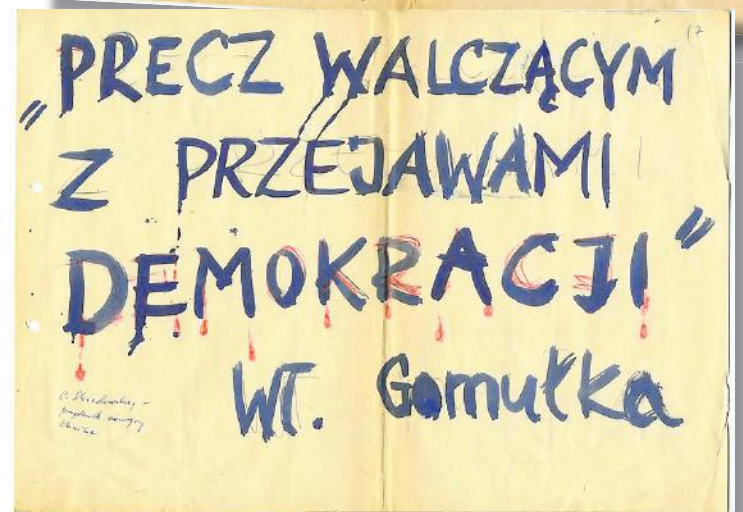 17
„PRECZ WALCZĄCYM
Z PRZEJAWAMI
DEMOKRACJI”
WŁ. Gomułka